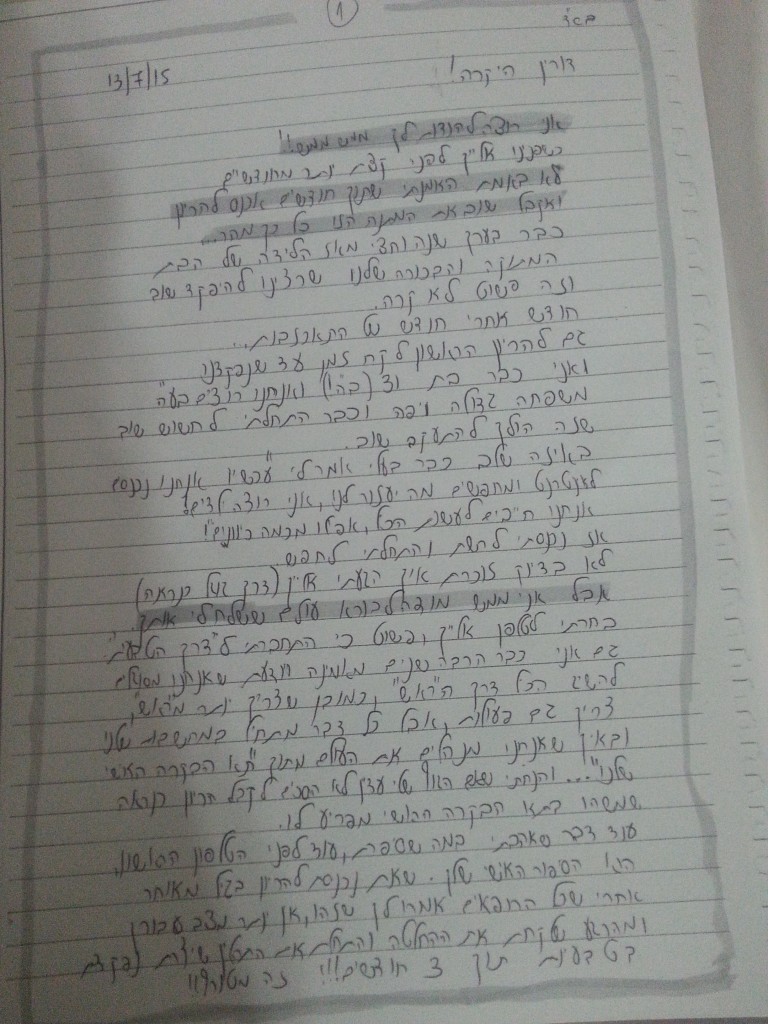 1
בס"ד
דורין היקרה!
13/7/15
אני רוצה להודות לך ממש ממש!!
כשפניתי אלייך לפני קצת יותר מחודשיים
לא באמת האמנתי שתוך חודשים אכנס להריון
ואקבל שוב את המתנה הזו כל כך מהר...
כבר בערך שנה וחצי מאז הלידה של הבת
המתוקה והבכורה שלנו שרצינו להיפקד שוב
וזה פשוט לא קרה.
חודש אחרי חודש של התאכזבות...
גם להריון הראשון לקח זמן עד שנפקדנו
ואני כבר בת (ב"ה!) ואנחנו רוצים בע"ה
משפחה גדולה ויפה וכבר התחלתי לחשוש שוב
שזה הולך להתעכב שוב.
באיזה שלב כבר בעלי אמר לי "עכשיו אנחנו נכנסים
לאינטרנט ומחפשים מה יעזור לנו, אני רוצה ילדים!
אנחנו חייבים לעשות הכל, אפילו מכמה כיוונים"!
אז נכנסתי לרשת והתחלתי לחפש
לא בדיוק זוכרת איך הגעתי אלייך (דרך גוגל כנראה)
אבל אני ממש מודה לבורא עולם ששלח לי אותך.
בחרתי לטלפן אלייך, פשוט כי התחברתי ל"דרך הטבעית"
גם אני כבר הרבה שנים מאמינה ויודעת שאנחנו מסוגלים
להשיג הכל דרך ה"ראש", כמובן שצריך יותר מ"ראש",
צריך גם פעולות, אבל כל דבר מתחיל במחשבות שלנו
ובאיך שאנחנו מנהלים את העולם מתוך "תא הבקרה האישי
שלנו"... והנחתי שאם הגוף שלי עדיין לא הסכים לקבל הריון כנראה
שמשהו בתא הבקרה הראשי מפריע לו.
עוד דבר שאהבתי במה שסיפרת, עוד לפני הטלפון הראשון,
הוא הסיפור האישי שלך. שאת נכנסת להריון בגיל מאוחר
אחרי שכל הרופאים אמרו לך שזהו, אין יותר מצב עבורך
ומהרגע שלקחת את ההחלטה והתחלת את התהליך שיצרת נפקדת
בטבעיות תוך 3 חודשים!!! זה מטורף!!